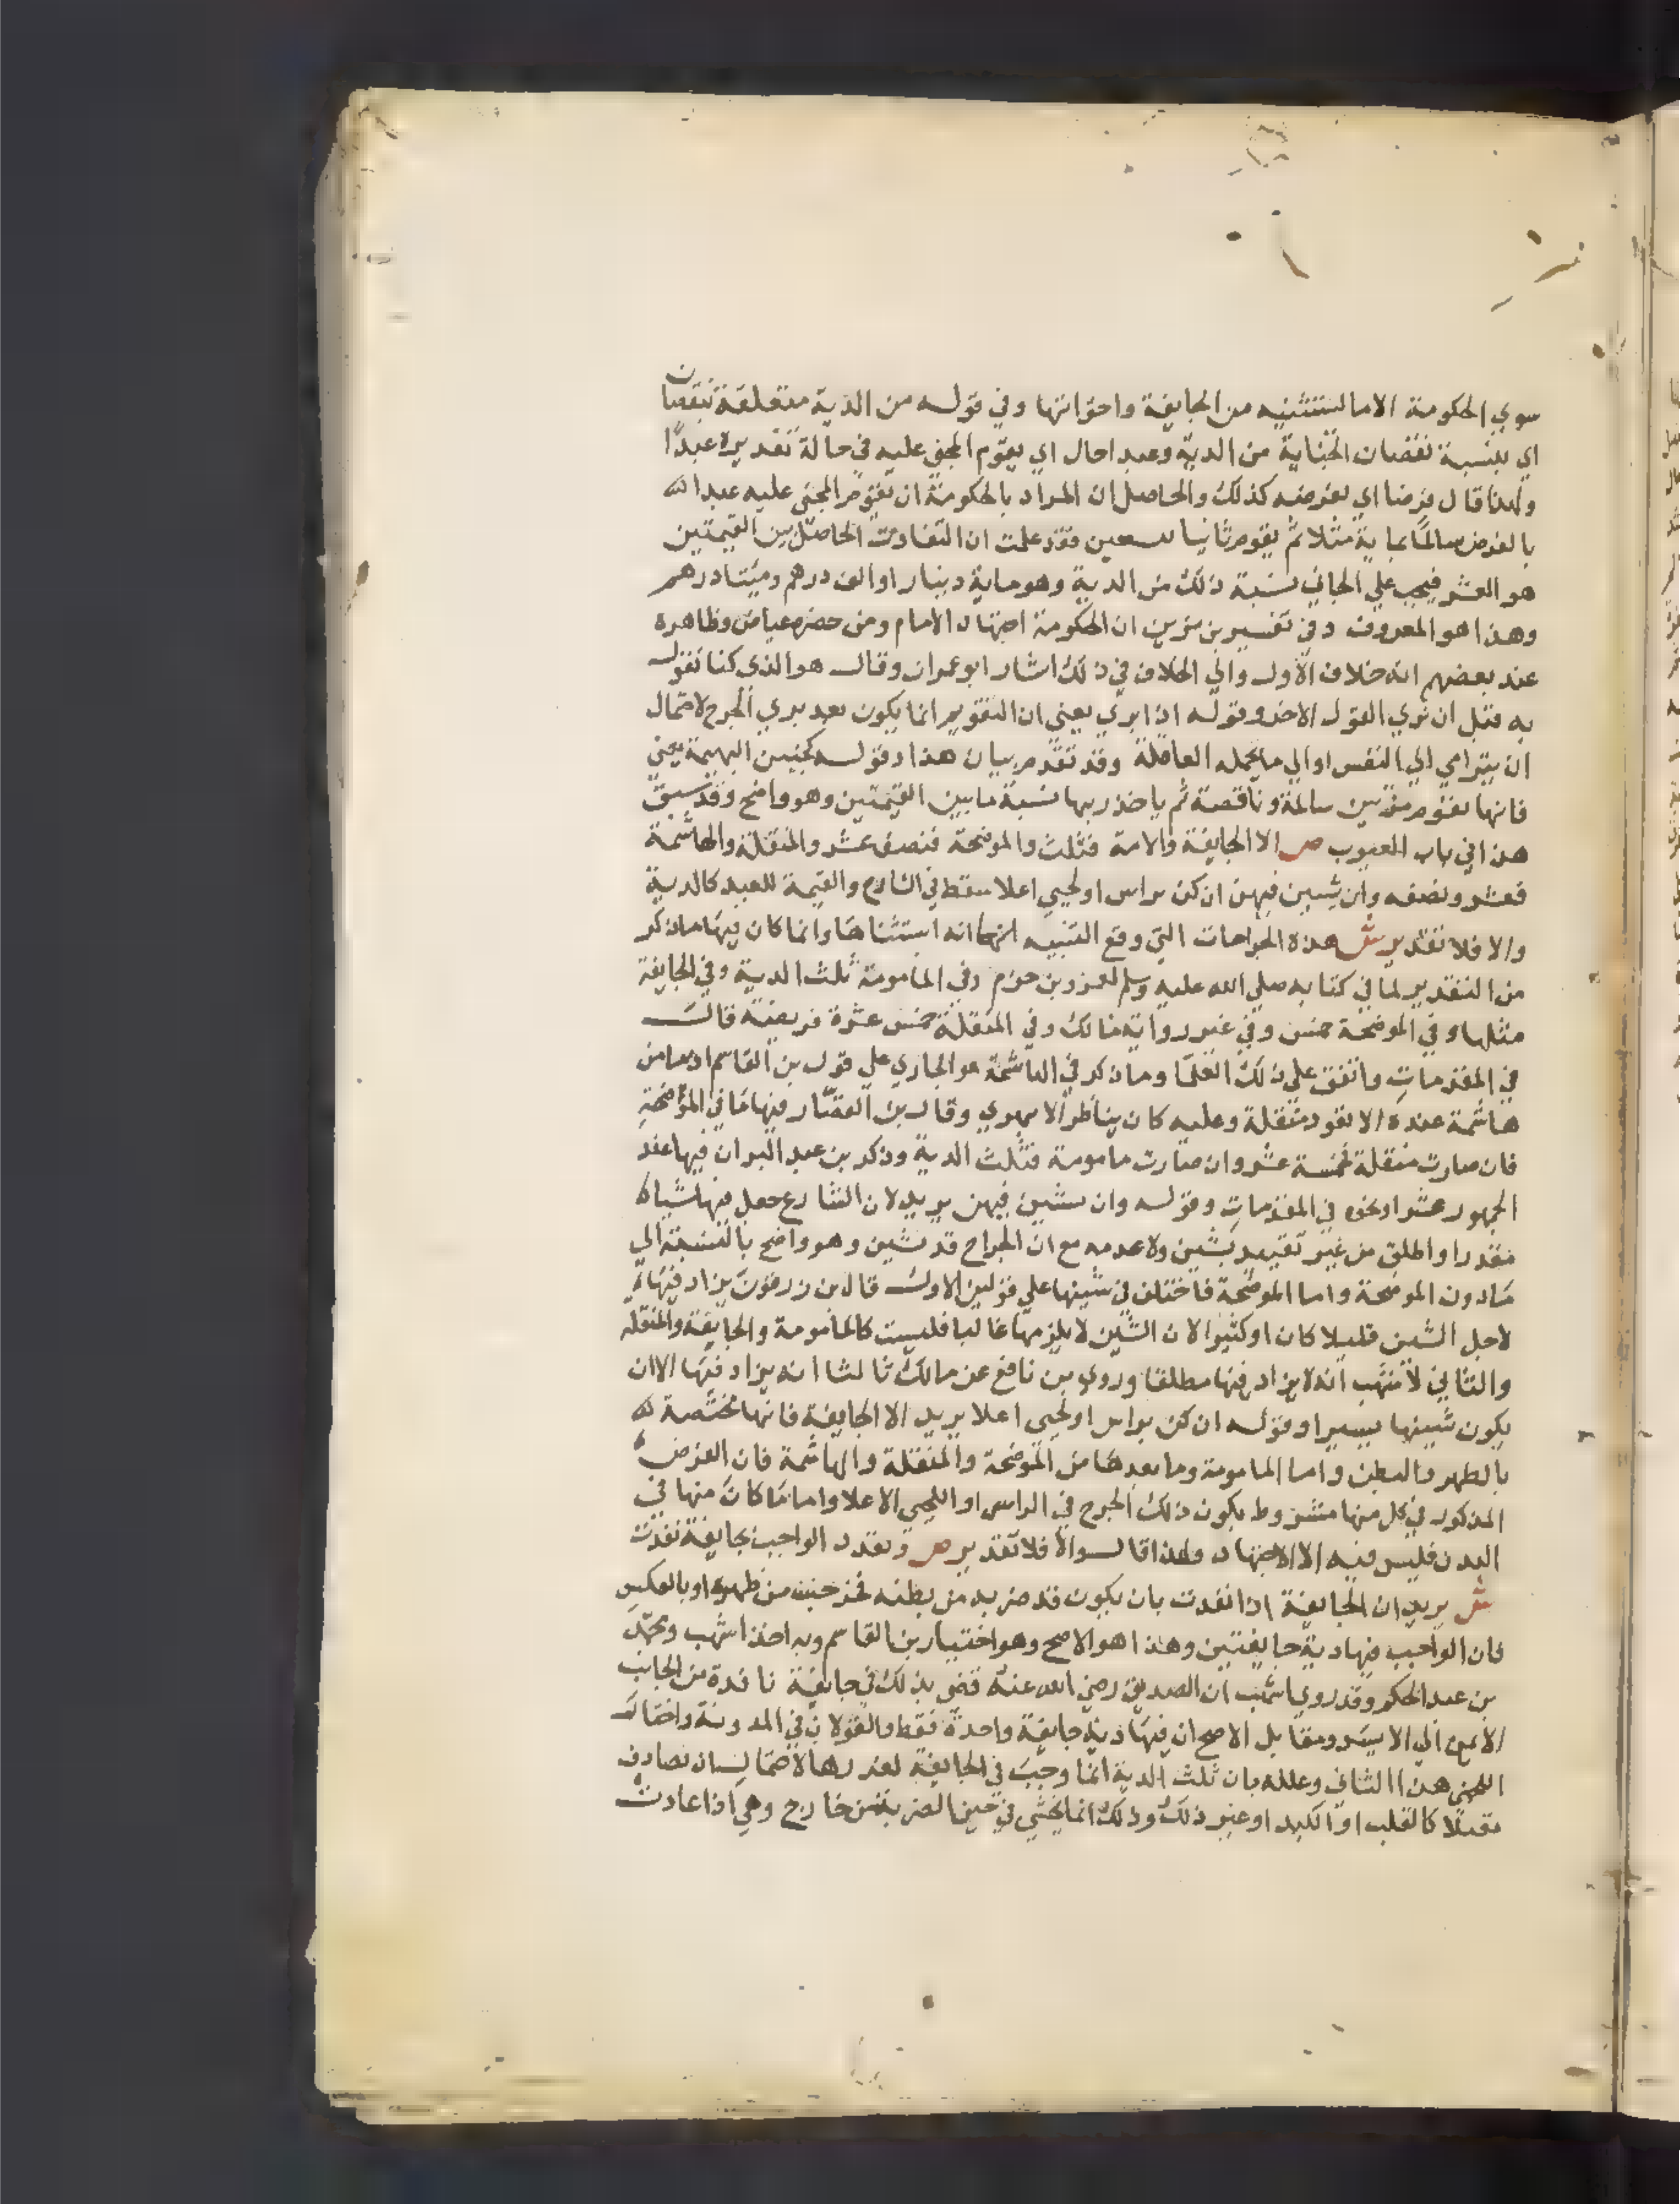 سوي الحكومة الا ما لستثنيه من الجايفة واخواتها وفي قوله من الدية متعلقة بنقصان
اي بنسبة نقصان الجناية من الدية وعبدا حال اي يقوم المجني عليه في حالة تقديره عبدًا
ولهذا قال فرضا اي بفرضه كذلك والحاصل ان المراد بالحكومة ان يقوم المجني عليه عبدا
بالفرض سالمًا بماية مثلا ثم يقوم ثانيا بتسعين فقد علمت ان التفاوت الحاصل بين القيمتين
هو العشر فيجب علي الجاني نسبة ذلك من الدية وهو ماية دينار او الف درهم وميتا درهم
وهذا هو المعروف وفي تفسير بن مزين ان الحكومة اجتهاد الامام ومن حضره عياض وظاهره
عند بعضهم انه خلاف الاول والي الخلاف في ذلك اشار ابو عمران وقال هو الذي كنا نقول
به قبل ان نري القول الاخر وقوله اذا بري يعني ان التقويم انما يكون بعد بري الجرح لاحتمال
ان يترامي الي النفس او الي ما تحمله العاقلة وقد تقدم بيان هذا وقوله كجنين البهيمة يعني
فانها تقوم مرتين سالمة وناقصة ثم ياخذ ربها نسبة ما بين القيمتين وهو واضح وقد سبق
هذا في باب العيوب ص الا الجايفة والامة فثلث والموضحة فنصف عشر والمنقلة والهاشمة
فعشر ونصفه وان بشين فيهن ان كن براس او لحيي اعلا سقط في الشارح والقيمة للعبد كالدية
والا فلا تقدير ش هذه الجراحات التي وقع التنبيه انها انه استثناها وانما كان فيها ما ذكر
من التقدير لما في كتابه صلي الله عليه وسلم لعمرو بن حزم وفي المامومة ثلث الدية وفي الجايفة
مثلها وفي الموضحة خمس وفي غير رواية مالك وفي المنقلة خمس عشرة فريضة قال
في المقدمات واتفق علي ذلك العلما وما ذكر في الهاشمة هو الجاري علي قول بن القاسم اذ ما من
هاشمة عنده الا تعود منقلة وعليه كان يناظر الابهري وقال بن القصار فيها ما في الموضحة
فان صارت منقلة فخمسة عشر وان صارت مامومة فثلث الدية وذكر بن عبد البر ان فيها عند
الجمهور عشرا ونحوه في المقدمات وقوله وان بشين فيهن يريد لان الشارع جعل فيها شياه
مقدرا واطلق من غير تقييد بشين ولا عدمه مع ان الجراح قد تشين وهو واضح بالنسبة الي
ما دون الموضحة واما الموضحة فاختلف في شينها علي قولين الاول قال بن زرقون يزاد فيها
لاجل الشين قليلا كان او كثيرا لان الشين لا يلزمها غالبا فليست كالمامومة والجايفة والمنقلة
والثاني لاشهب انه لا يزاد فيها مطلقا وروي بن نافع عن مالك ثالثا انه يزاد فيها الا ان
يكون شينها يسيرا وقوله ان كن براس او لحيي اعلا يريد الا الجايفة فانها مختصة
بالظهر والبطن واما المامومة وما بعدها من الموضحة والمنقلة والهاشمة فان الفرض
المذكور في كل منها مشروط بكون ذلك الجرح في الراس او اللحيي الاعلا واما ما كان منها في
البدن فليس فيه الا الاجتهاد ولهذا قال والا فلا تقدير ص وتعدد الواجب بجايفة نفذت
ش يريد ان الجايفة اذا نفذت بان يكون قد ضربه من بطنه فخرجت من ظهره او بالعكس
فان الواجب فيها دية جايفتين وهذا هو الاصح وهو اختيار بن القاسم وبه اخذ اشهب ومحمد
بن عبد الحكم وقد روي اشهب ان الصديق رضي الله عنه قضي بذلك في جايفة نافذة من الجانب
الايمن الي الايسر ومقابل الاصح ان فيها دية جايفة واحدة فقط والقولان في المدونة واختار
اللخمي هذا الثاني وعلله بان ثلث الدية انما وجب في الجايفة لغررها لاحتمال ان تصادف
مقتلا كالقلب او الكبد او غير ذلك وذلك انما يخشي في حين الضربة من خارج وهي اذا عادت